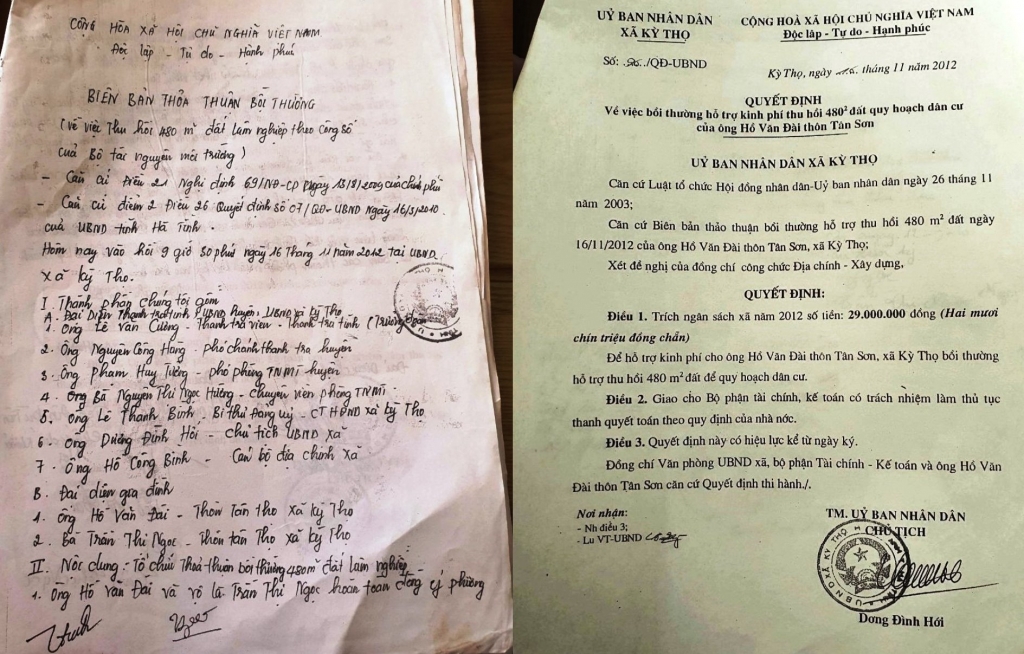 CỘNG HÒA XÃ HỘI CHỦ NGHĨA VIỆT NAM
Độc lập - Tự do - Hạnh phúc
BIÊN BẢN THỎA THUẬN BỒI THƯỜNG
(về việc Thu hồi 480 m² đất lâm nghiệp theo Công số
của Bộ tài nguyên môi trường)
- Căn cứ Điều 21 Nghị định 69/NĐ-CP Ngày 13/8/2009 của chính phủ
- Căn cứ điểm 2 Điều 26 Quyết định số 07/QĐ-UBND Ngày 16/3/2010.
của UBND tỉnh Hà Tĩnh.
Hôm nay vào hồi 9 giờ 30 phút ngày 16 Tháng 11 năm 2012 Tại UBND.
Xã Kỳ Thọ.
I. Thành phần chúng tôi gồm
A. Đại Diện Thanh tra tỉnh, UBND huyện, UBND xã Kỳ Thọ
1. Ông Lê Văn Cường - Thanh tra viên - Thanh tra tỉnh (Trưởng đoàn
2. Ông Nguyễn Công Hàng - phó chánh thanh tra huyện
3. Ông Phạm Huy Tường - phó phòng TNMT huyện
4. Ông Bà Nguyễn Thị Ngọc Hường - chuyên viên phòng TNMT.
5. Ông Lê Thanh Bình. Bí thư Đảng uỷ - CT HĐND xã Kỳ Thọ
6. Ông Dương Đình Hới - Chủ tịch UBND Xã
7. Ông Hồ Công Bình - Cán bộ địa chính xã
B. Đại diện gia đình
1. Ông Hồ Văn Đài - Thôn Tân Thọ xã Kỳ Thọ
2. Bà Trần Thị Ngọc - Thôn tân Thọ xã Kỳ Thọ
II. Nội dung - Tổ chức Thoả thuận bồi thường 480m² đất lâm nghiệp
1. Ông Hồ Văn Đài và vợ là Trần Thị Ngọc hoàn toàn đồng ý phương
UỶ BAN NHÂN DÂN
XÃ KỲ THỌ
CỘNG HOÀ XÃ HỘI CHỦ NGHĨA VIỆT NAM
Độc lập - Tự do - Hạnh phúc
Số: /QĐ-UBND
Kỳ Thọ, ngày tháng 11 năm 2012
QUYẾT ĐỊNH
Về việc bồi thường hỗ trợ kinh phí thu hồi 480² đất quy hoạch dân cư
của ông Hồ Văn Đài thôn Tân Sơn
UỶ BAN NHÂN DÂN XÃ KỲ THỌ
Căn cứ Luật tổ chức Hội đồng nhân dân-Uỷ ban nhân dân ngày 26 tháng 11
năm 2003;
Căn cứ Biên bản thảo thuận bồi thường hỗ trợ thu hồi 480 m² đất ngày
16/11/2012 của ông Hồ Văn Đài thôn Tân Sơn, xã Kỳ Thọ;
Xét đề nghị của đồng chí công chức Địa chính - Xây dựng,
QUYẾT ĐỊNH:
Điều 1. Trích ngân sách xã năm 2012 số tiền: 29.000.000 đồng (Hai mươi
chín triệu đồng chẵn)
Để hỗ trợ kinh phí cho ông Hồ Văn Đài thôn Tân Sơn, xã Kỳ Thọ bồi thường
hỗ trợ thu hồi 480 m² đất để quy hoạch dân cư.
Điều 2. Giao cho Bộ phận tài chính, kế toán có trách nhiệm làm thủ tục
thanh quyết toán theo quy định của nhà nớc.
Điều 3. Quyết định này có hiệu lực kể từ ngày ký.
Đồng chí Văn phòng UBND xã, bộ phận Tài chính - Kế toán và ông Hồ Văn
Đài thôn Tân Sơn căn cứ Quyết định thi hành./.
Nơi nhận:
- Nh điều 3;
- Lu VT-UBND
TM. UỶ BAN NHÂN DÂN
CHỦ TỊCH
Dơng Đình Hới